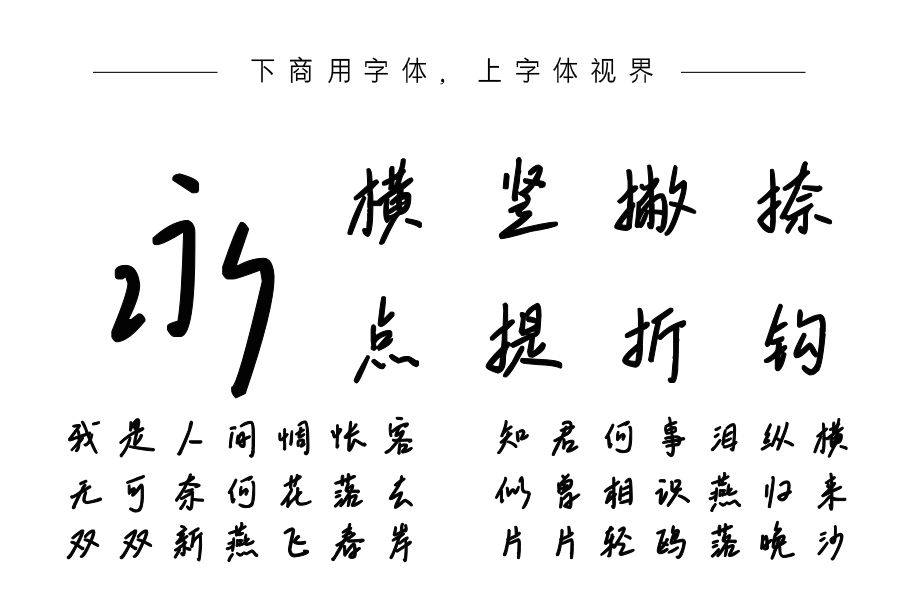 下商用字体，上字体视界
永
横 竖 撇 捺
点 提 折 钩
我是人间惆怅客 知君何事泪纵横
无可奈何花落去 似曾相识燕归来
双双新燕飞春岸 片片轻鸥落晚沙